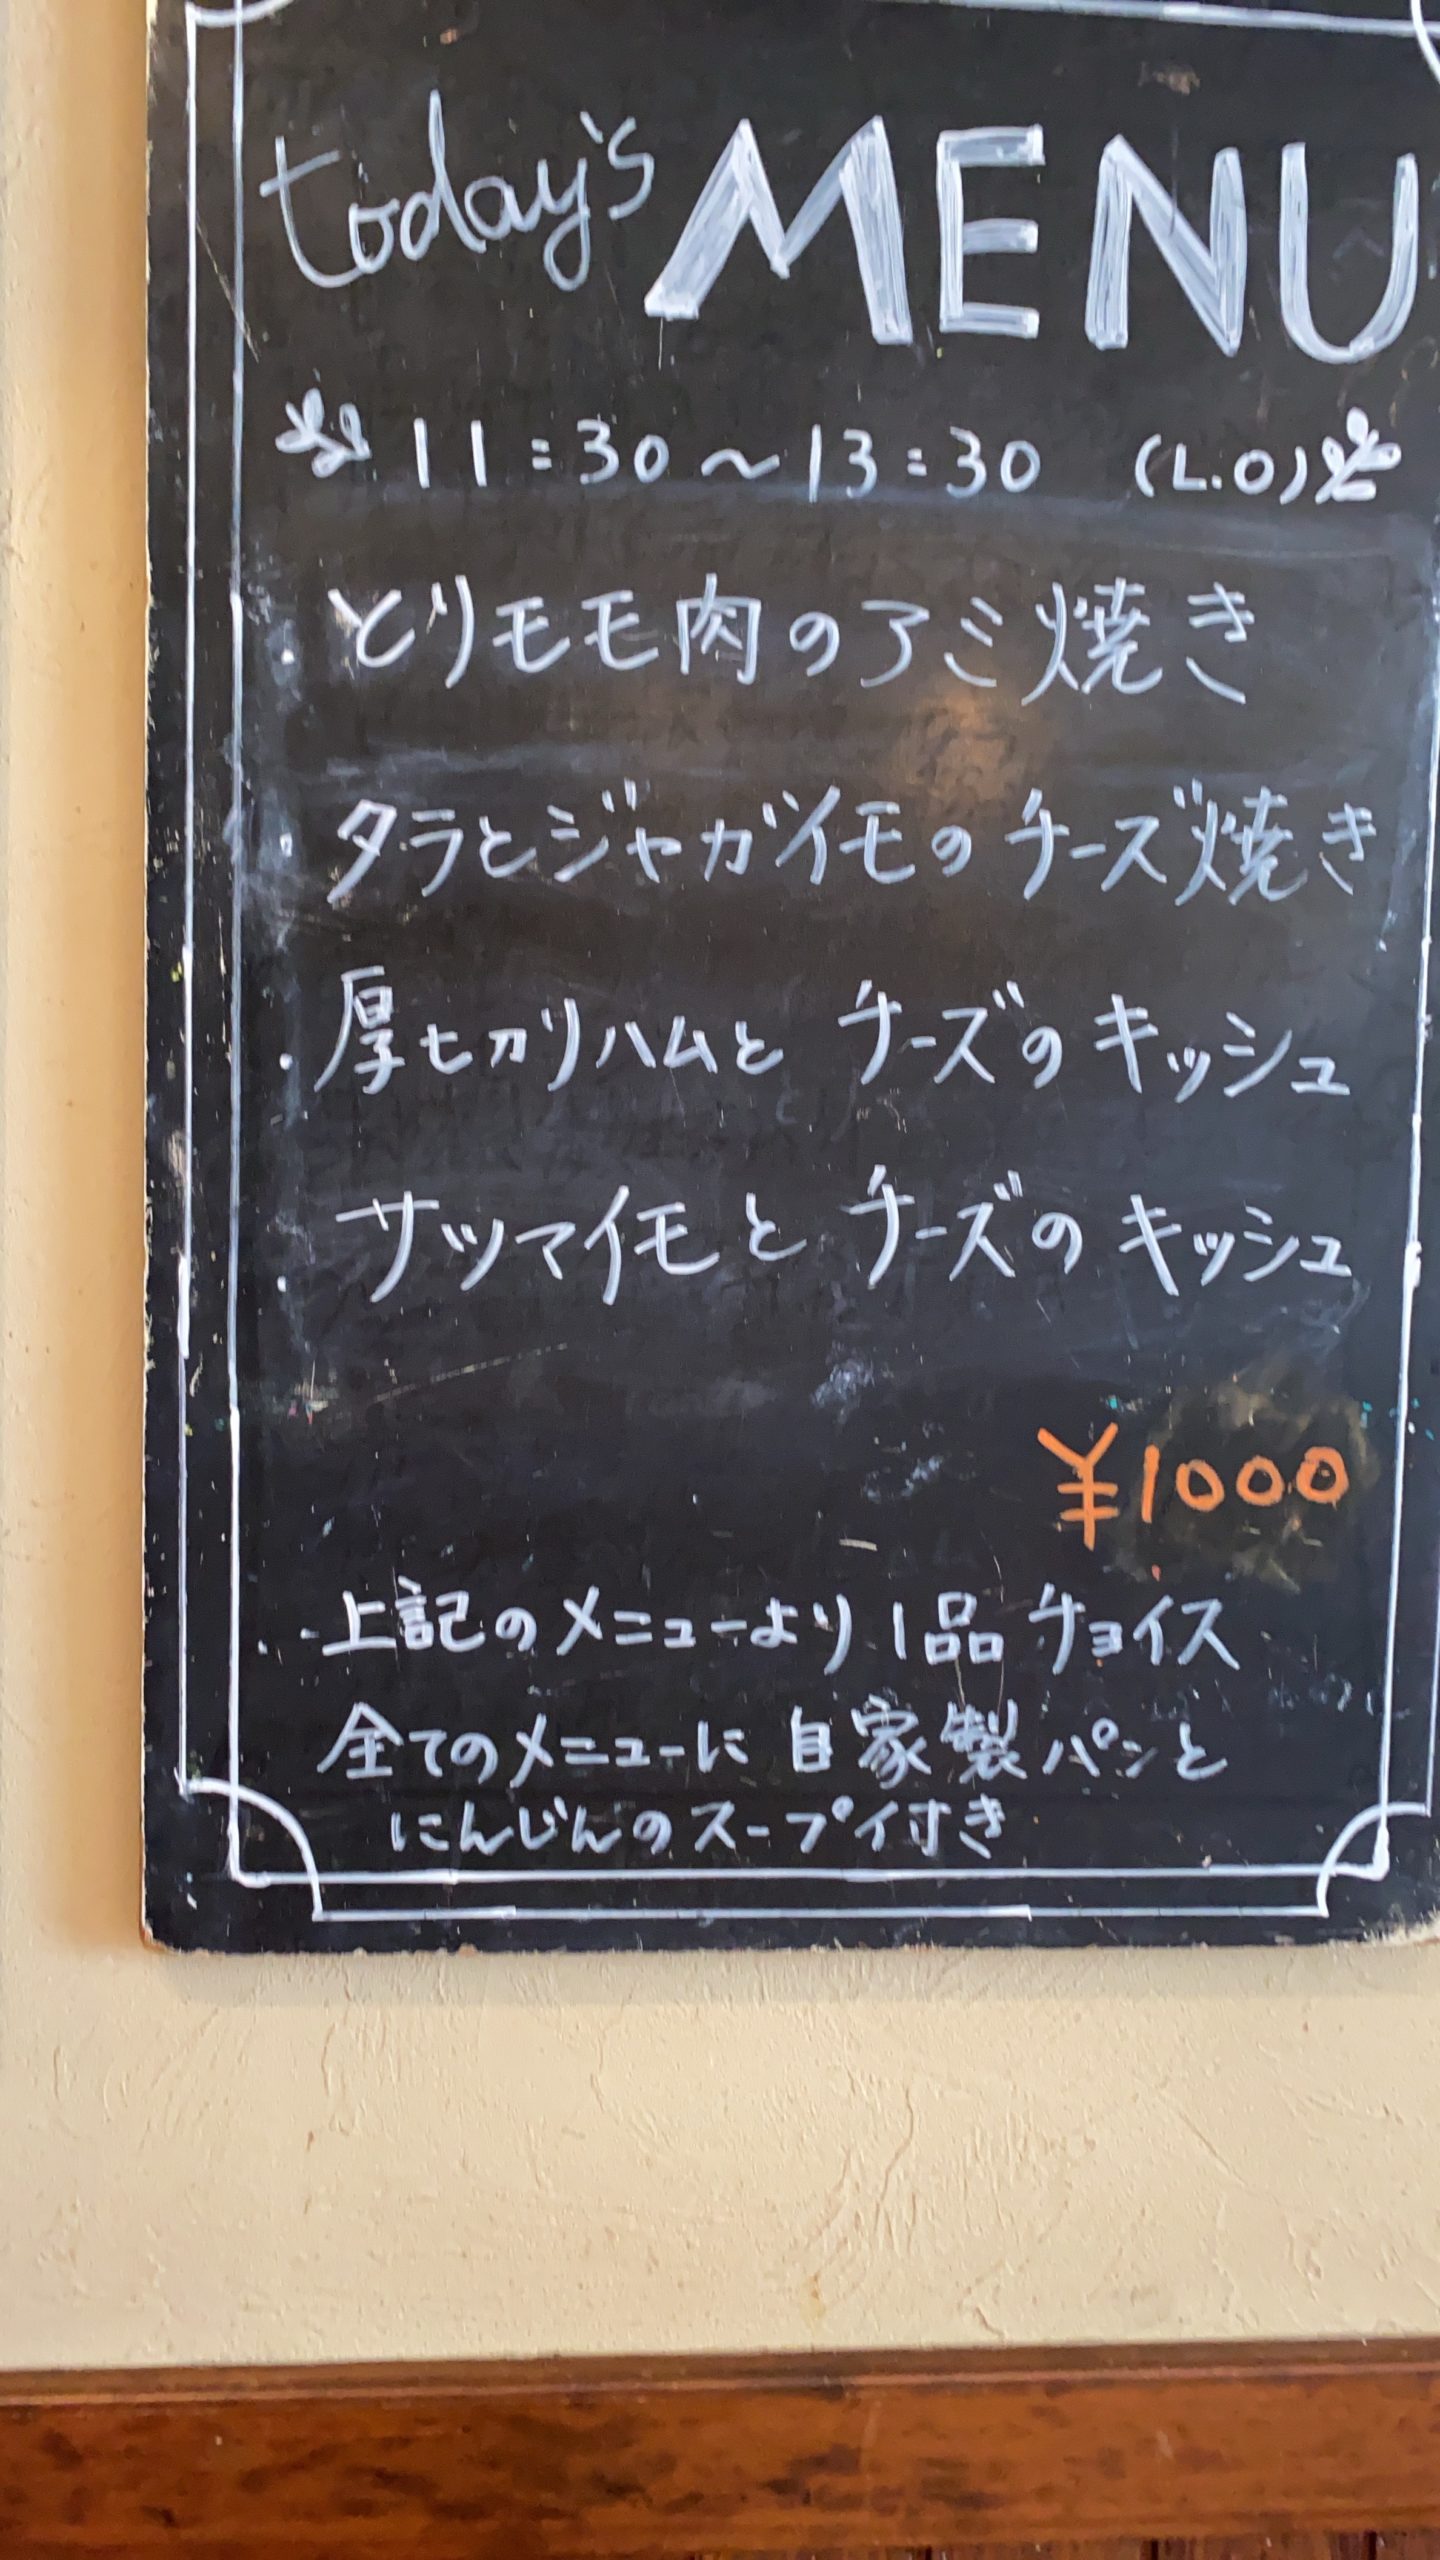 today's MENU
11:30～13:30 (L.O)
・とりモモ肉のアミ焼き
・タラとジャガイモのチーズ焼き
・厚切りハムと チーズのキッシュ
・サツマイモと チーズのキッシュ
¥1000
上記のメニューより1品 チョイス
全てのメニューに 自家製パンと
にんじんのスープ付き